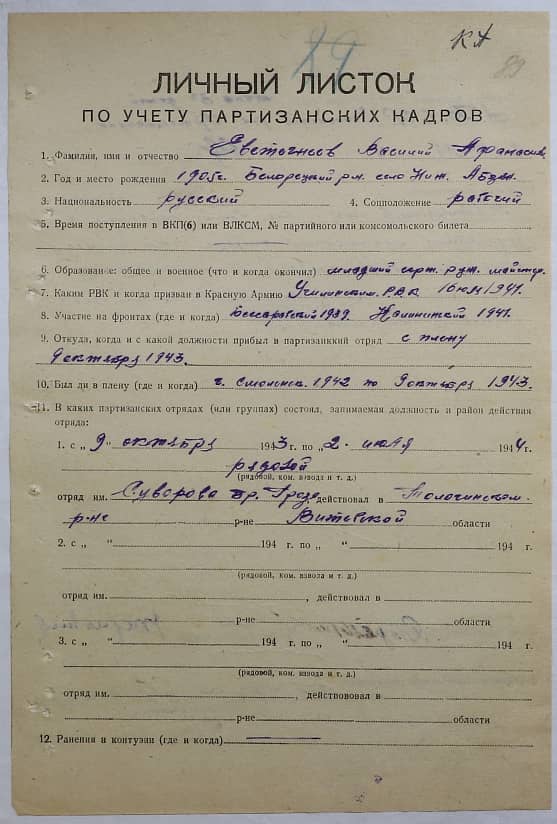 КА
89
89
ЛИЧНЫЙ ЛИСТОК
ПО УЧЕТУ ПАРТИЗАНСКИХ КАДРОВ
1. Фамилия, имя и отчество Евстигнеев Василий Афанасьев.
2. Год и место рождения 1905г. Белорецкий р-н. село Ниж. Абзян.
3. Национальность русский 4. Соцположение рабочий
5. Время поступления в ВКП(б) или ВЛКСМ, № партийного или комсомольского билета
6. Образование: общее и военное (что и когда окончил) младший серж. руж. мастер.
7. Каким РВК и когда призван в Красную Армию РВК 1941.
8. Участие на фронтах (где и когда) 1939. 1941.
9. Откуда, когда и с какой должности прибыл в партизанский отряд с плену
9 октября 1943.
10. Был ли в плену (где и когда) г. Смоленск. 1942 по 9 октября 1943.
11. В каких партизанских отрядах (или группах) состоял, занимаемая должность и район действия
отряда:
1. с „ 9 октября 1943 г. по „ 2 - июля 1944 г.
рядовой
(рядовой, ком. взвода и т. д.)
отряд им. Суворова бр. Гроза действовал в Толочинском
р-не р-не Витебской области
2. с „ “ 194 г. по „ “ 194 г.
(рядовой, ком. взвода и т. д.)
отряд им. , действовал в
р-не области
3. с „ “ 194 г. по „ “ 194 г.
(рядовой, ком. взвода и т. д.)
отряд им. , действовал в
р-не области
12. Ранения и контузии (где и когда)